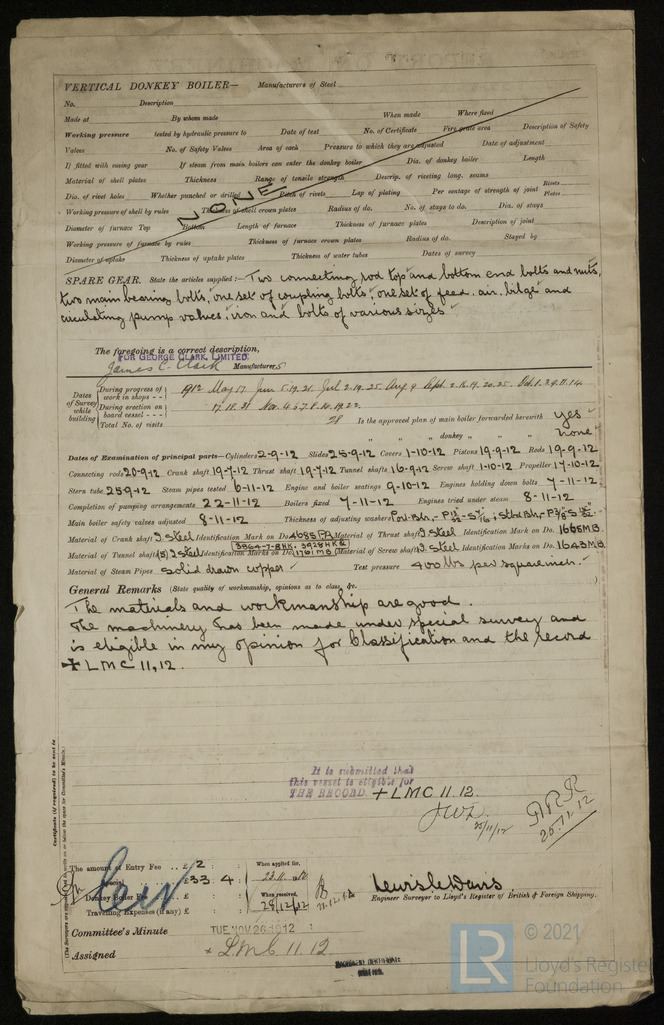 VERTICAL DONKEY BOILER— Manufacturers of Steel
No. Description
Made at By whom made When made Where fixed
Working pressure tested by hydraulic pressure to Date of test No. of Certificate Fire grate area Description of Safety
Valves No. of Safety Valves Area of each Pressure to which they are adjusted Date of adjustment
If fitted with easing gear If steam from main boilers can enter the donkey boiler Dia. of donkey boiler Length
Material of shell plates Thickness Range of tensile strength Descrip. of riveting long. seams
Dia. of rivet holes Whether punched or drilled Pitch of rivets Lap of plating Per centage of strength of joint Rivets Plates
Working pressure of shell by rules Thickness of shell crown plates Radius of do. No. of stays to do. Dia. of stays
NONE
Diameter of furnace Top Bottom Length of furnace Thickness of furnace plates Description of joint
Working pressure of furnace by rules Thickness of furnace crown plates Radius of do. Stayed by
Diameter of uptake Thickness of uptake plates Thickness of water tubes Dates of survey
SPARE GEAR. State the articles supplied:— Two connecting rod top and bottom end bolts and nuts,
two main bearing bolts, one set of coupling bolts, one set of feed, air, bilge and
circulating pump valves, iron and bolts of various sizes
The foregoing is a correct description,
FOR GEORGE CLARK, LIMITED.
James C. Clark Manufacturers
Dates of Survey while building During progress of work in shops -- 1912 May 17 Jun 5.19.21. Jul 2.19.25. Aug 9 Sept. 2.16.19.20.25. Oct. 1.2.9.11.14.
During erection on board vessel --- 17.18.21 Nov. 4.6.7.8.14.19.22.
Total No. of visits 28 Is the approved plan of main boiler forwarded herewith yes
" " " donkey " " " none
Dates of Examination of principal parts—Cylinders 2-9-12 Slides 25-9-12 Covers 1-10-12 Pistons 19-9-12 Rods 19-9-12
Connecting rods 20-9-12 Crank shaft 19-7-12 Thrust shaft 19-7-12 Tunnel shafts 16-9-12 Screw shaft 1-10-12 Propeller 17-10-12
Stern tube 25-9-12 Steam pipes tested 6-11-12 Engine and boiler seatings 9-10-12 Engines holding down bolts 7-11-12
Completion of pumping arrangements 22-11-12 Boilers fixed 7-11-12 Engines tried under steam 8-11-12
Main boiler safety valves adjusted 8-11-12 Thickness of adjusting washers
Material of Crank shaft I Steel Identification Mark on Do. 4685PA Material of Thrust shaft I Steel Identification Mark on Do. 1665MB
Material of Tunnel shafts (5) I Steel Identification Marks on Do. 1761 MB Material of Screw shaft I Steel Identification Marks on Do. 1643MB
Material of Steam Pipes Solid drawn copper Test pressure 400 lbs per square inch.
General Remarks (State quality of workmanship, opinions as to class, &c.
The materials and workmanship are good.
The machinery has been made under special survey and
is eligible in my opinion for Classification and the record
+ LMC 11,12.
Certificate (if required) to be sent to
(The Surveyors are requested not to write on or below the space for Committee's Minute.)
It is submitted that
this vessel is eligible for
THE RECORD. + LMC 11.12.
25/11/12
25.11.12
The amount of Entry Fee .. £ 2 : : When applied for,
Special £ 33 : 4 : 23.11.1912
Donkey Boiler Fee £ : : When received,
Travelling Expenses (if any) £ : : 28/12/12
Lewis C. Davis
Engineer Surveyor to Lloyd's Register of British & Foreign Shipping.
Committee's Minute TUE. NOV 26 1912
Assigned + LMC 11.12
LR
© 2021
Lloyd's Register
Foundation